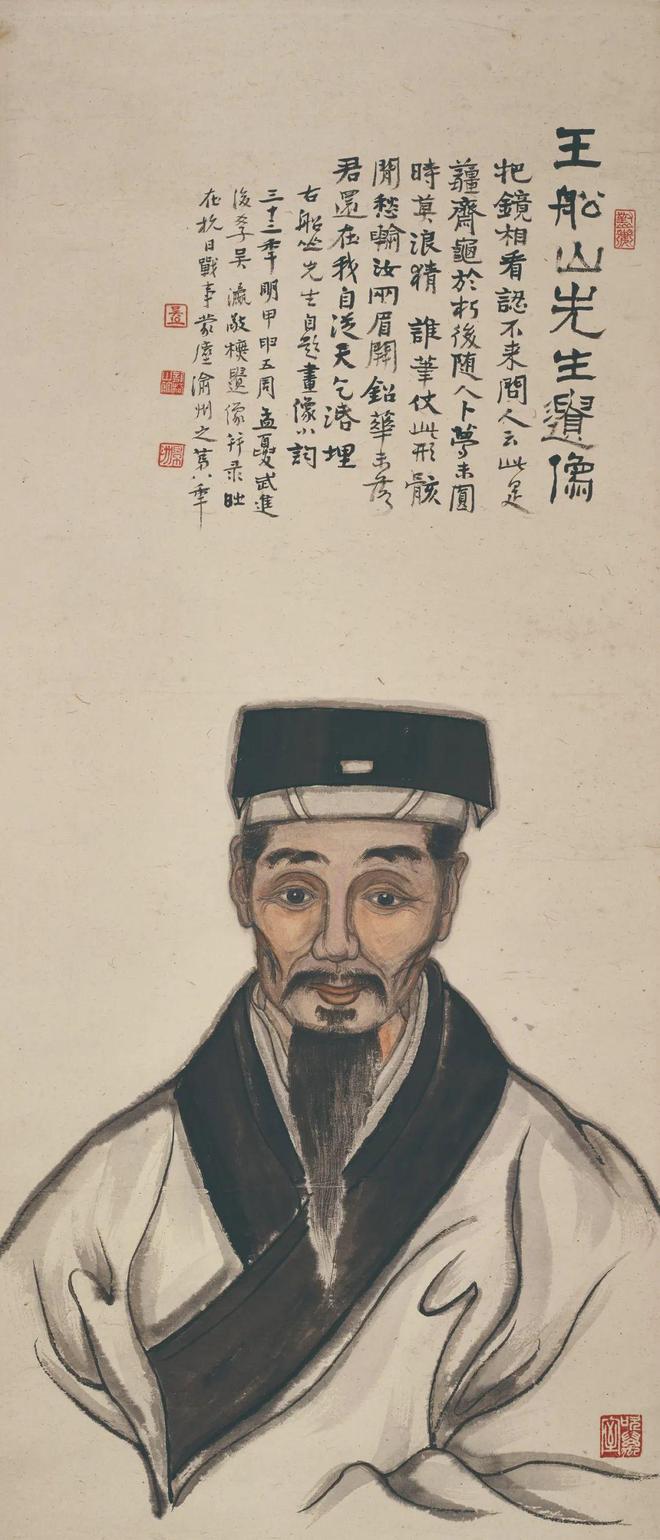 王舩山先生遺像
把鏡相看認不来問人云此是
薑齋龜於朽後随人卜夢未圓
時莫浪猜 誰筆仗此形骸
閒愁輸汝兩眉開鉛華未落
君還在我自從天乞活埋
右舩山先生自題畫像小詞
三十三年明甲申五周孟夏武進
後学吴瀛敬橅遺像并录时
在抗日戰事蒙塵渝州之第八年